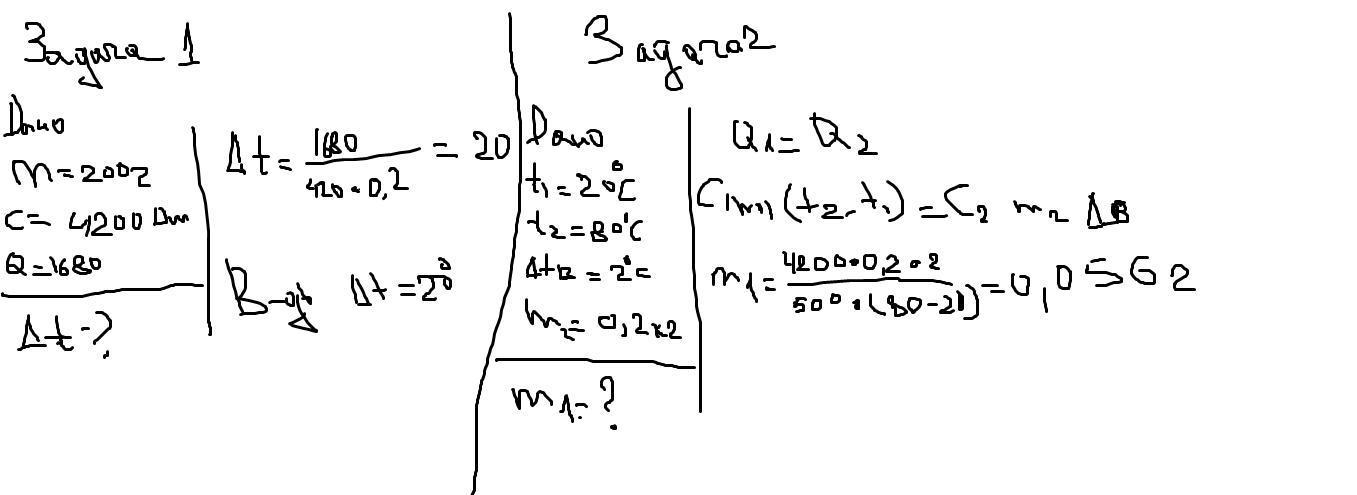 Задача 1
Дано
m = 200г
c = 4200 Дж
Q = 1680
Δt - ?
Δt = 1680 / 420 · 0,2 = 20
В-дь Δt = 2°
Задача 2
Дано
t₁ = 20°C
t₂ = 80°C
Δtв = 2°C
m₂ = 0,2кг
m₁ = ?
Q₁ = Q₂
C₁m₁ (t₂ - t₁) = C₂ m₂ Δв
m₁ = 4200 · 0,2 · 2 / 500 · (80 - 20) = 0,056г